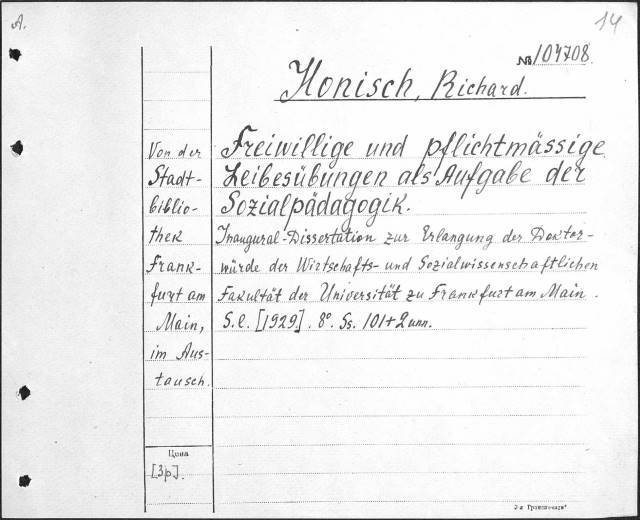 A.
14
№ 104708.
Honisch, Richard.
Freiwillige und pflichtmässige
Leibesübungen als Aufgabe der
Sozialpädagogik.
Inaugural-Dissertation zur Erlangung der Doktor-
würde der Wirtschafts- und Sozialwissenschaftlichen
Fakultät der Universität zu Frankfurt am Main.
S.l. [1929]. 8°. Ss. 101+2 unn.
Von der
Stadt-
biblio-
thek
Frank-
furt am
Main,
im Aus-
tausch.
Цена
[3p].